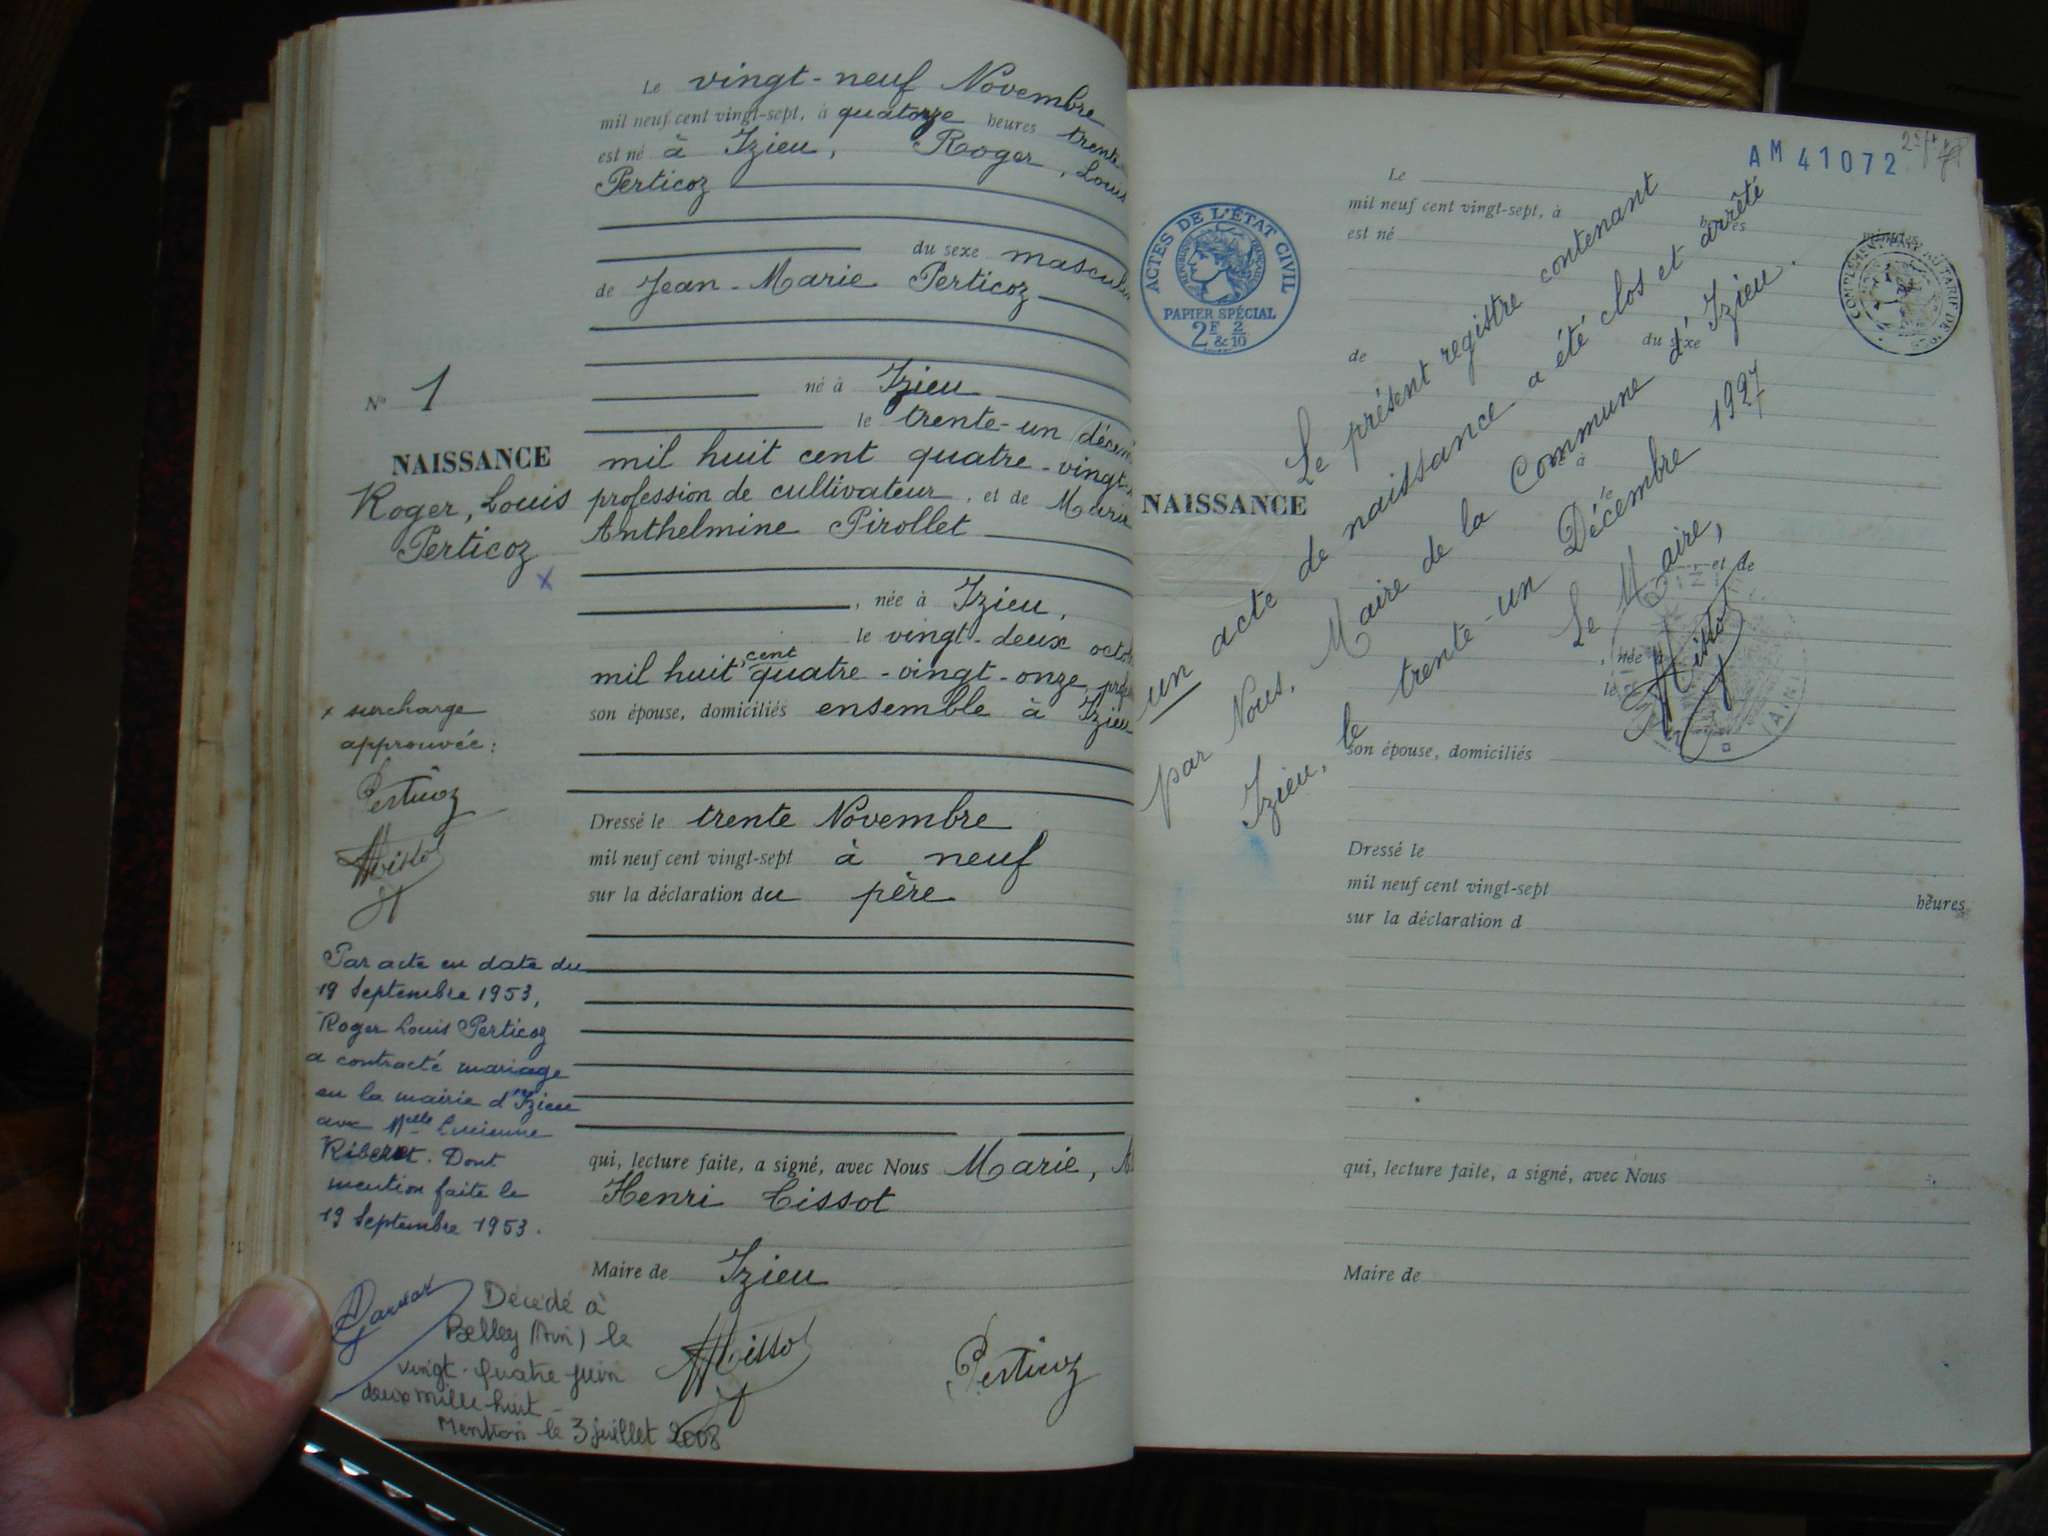 Le vingt-neuf Novembre
mil neuf cent vingt-sept, à quatorze heures trente
est né à Izieu, Roger, Louis
Perticoz
du sexe masculin
de Jean-Marie Perticoz
né à Izieu
le trente-un
mil huit cent quatre-vingt-
profession de cultivateur, et de Marie
Anthelmine Pirollet
, née à Izieu,
le vingt-deux
mil huit cent quatre-vingt-onze
son épouse, domiciliés ensemble à Izieu
Dressé le trente Novembre
mil neuf cent vingt-sept à neuf
sur la déclaration du père
qui, lecture faite, a signé, avec Nous Marie,
Henri Tissot
Maire de Izieu
Tissot
Perticoz
N° 1
NAISSANCE
Roger, Louis
Perticoz
x
x surcharge
approuvée:
Perticoz
Tissot
Par acte en date du
19 Septembre 1953,
Roger Louis Perticoz
a contracté mariage
en la mairie d'Izieu
avec Melle Lucienne
Dont
mention faite le
19 Septembre 1953.
Décédé à
Belley (Ain) le
vingt-quatre juin
deux mille huit
Mention le 3 juillet 2008
AM 41072
ACTES DE L'ÉTAT CIVIL
RÉPUBLIQUE FRANÇAISE
PAPIER SPÉCIAL
2F & 2/10
NAISSANCE
Le
mil neuf cent vingt-sept, à heures minutes
est né
du sexe
de
né à
le
et de
, née à
le
son épouse, domiciliés
Dressé le
mil neuf cent vingt-sept heures
sur la déclaration d
qui, lecture faite, a signé, avec Nous
Maire de
Le présent registre contenant
un acte de naissance a été clos et arrêté
par Nous, Maire de la Commune d'Izieu.
Izieu, le trente-un Décembre 1927
Le Maire,
Tissot